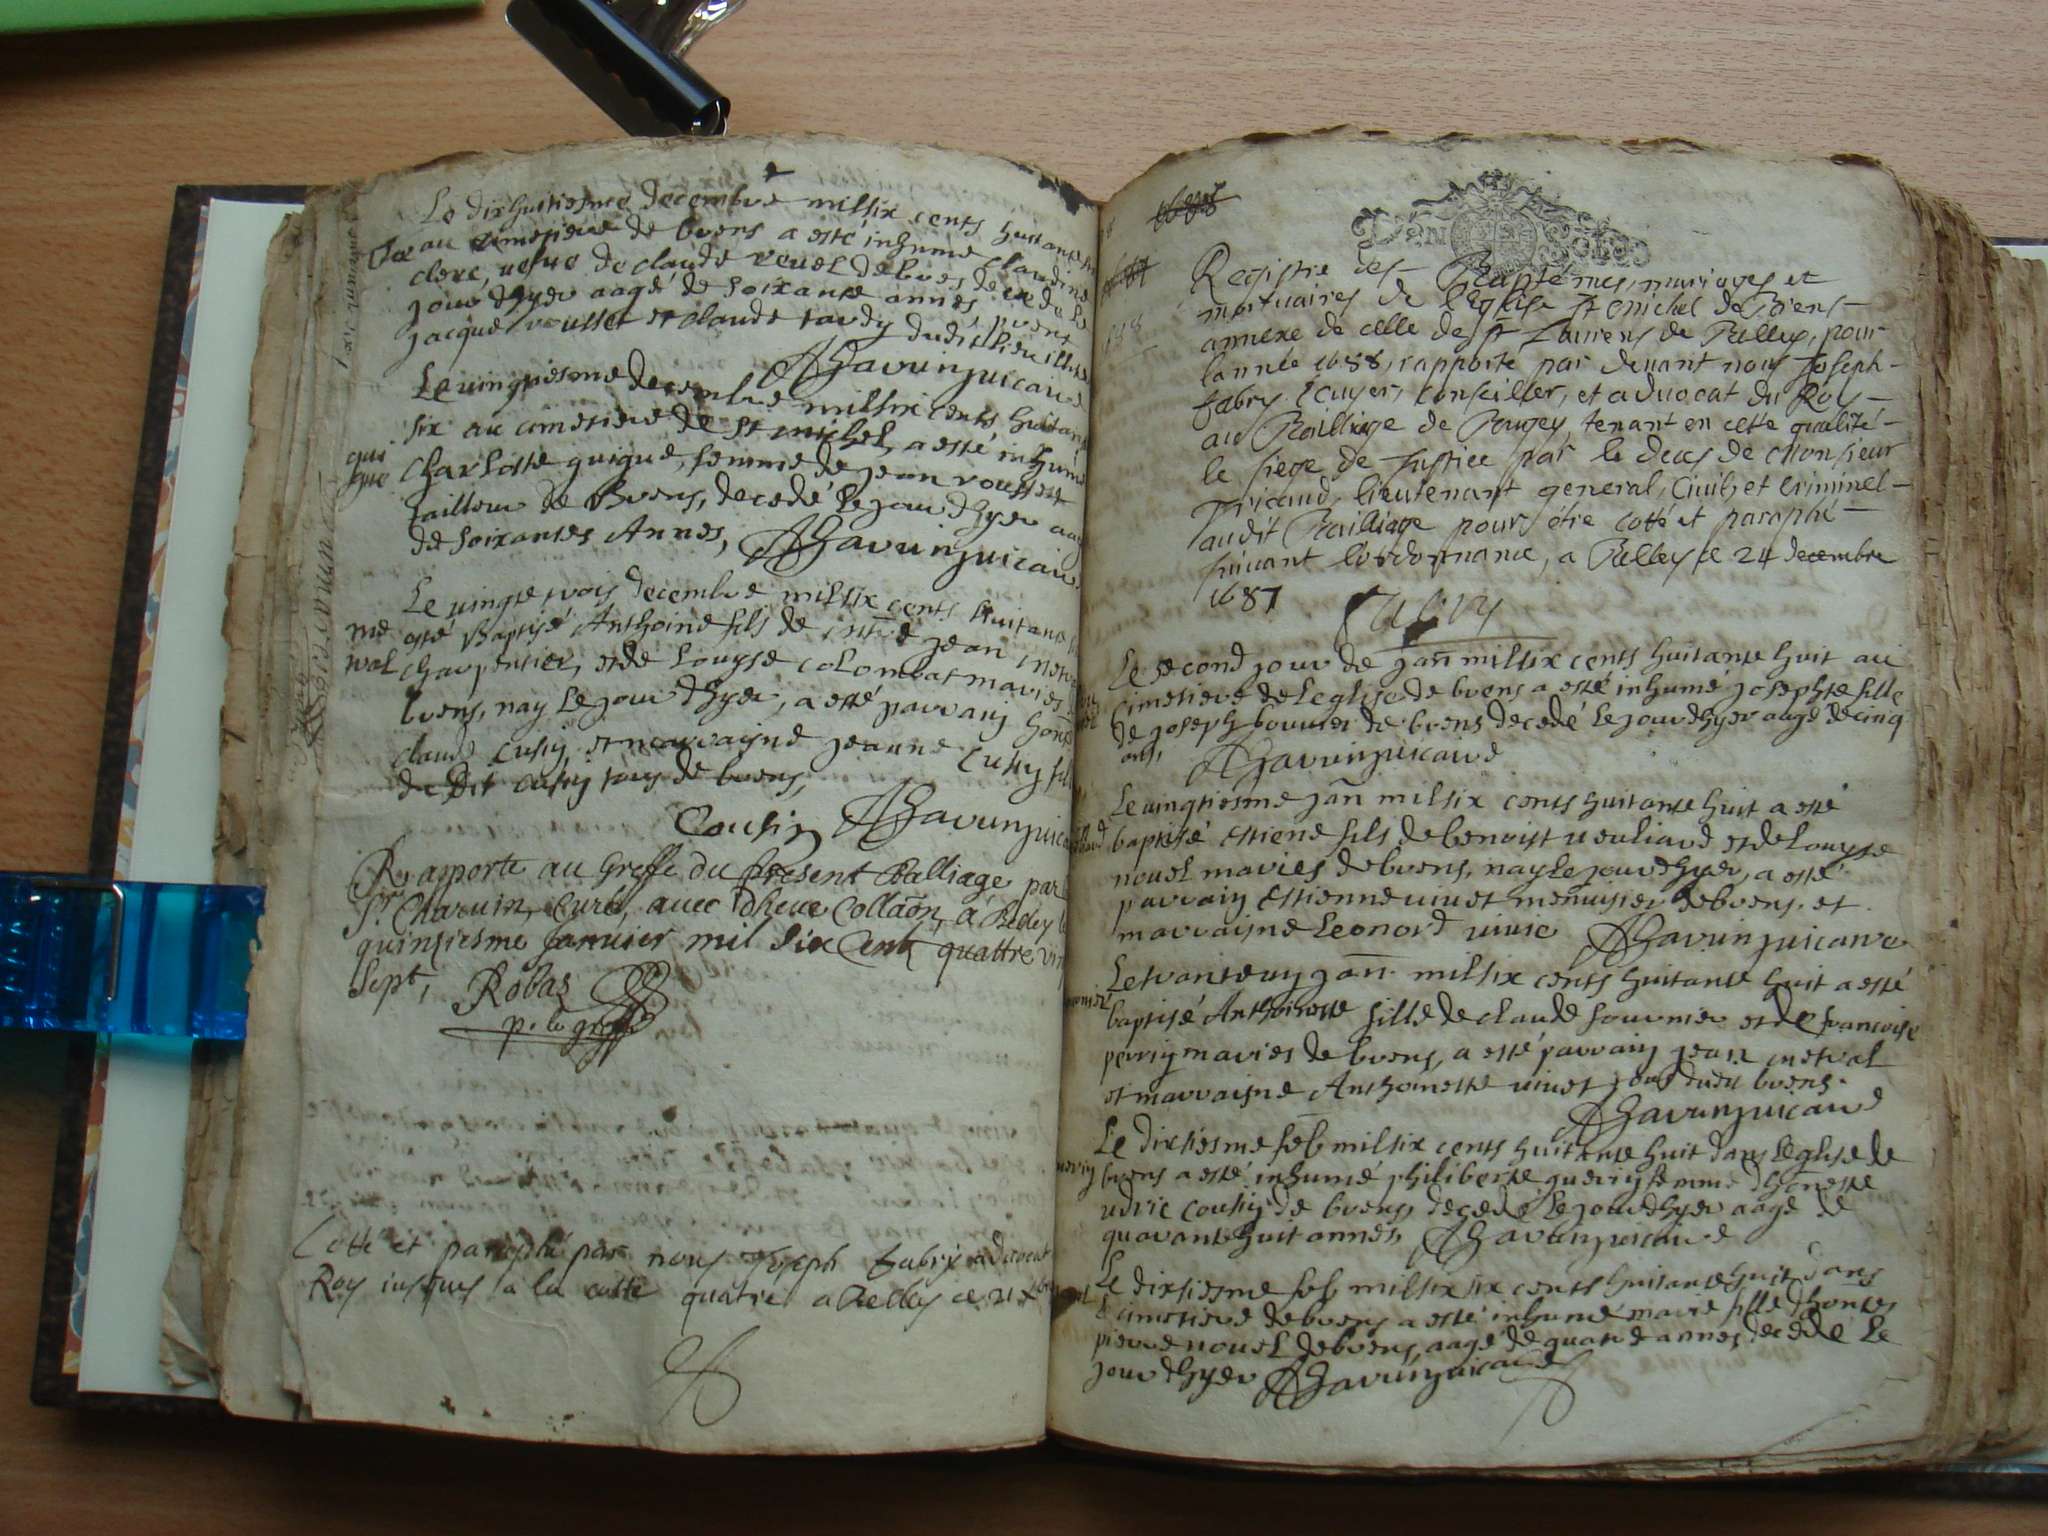 Le dixhuitiesme decembre mil six cents huitante
au cimetiere de brens a esté inhume claudine
clerc, vefve de claude revel de brens decede le
jour dhyer aagé de soixante annés, pnt
jacque rousset et claude tardy dudit lieu illiterés
Charvin vicaire
Le vingtiesme decembre mil six cents huitante
six au cimetiere de St michel a esté inhumé
gui
gue
Charlotte guigue, femme de jean rousset
tailleur de Brens, decedé le jour dhyer aagé
de soixantes Annes, Charvin vicaire
Le vingt trois decembre mil six cents huitante
esté Baptisé Anthoine fils de jean
me
tral
charpentier, et de Louyse colombat mariés
brens, nay le jour dhyer, a esté parrain
claude cusin et marrayne jeanne cusin
dudit cusin tous de brens,
Cousin Charvin vicaire
Rapporté au Greffe du present Balliage par
Sr Charvin, Curé, avec dheue Collaõn, a Belley
quinsiesme Janvier mil six cents quattre
sept, Robas
p. le greffe
Cotté et paraphé par nous Joseph Fabry advocat
Roy jusques a la cotte quatre a Belley ce
1688
Registre des Baptemes, mariages et
mortuaires de l'Eglise St Michel de Brens
annexe de celle de St Laurens de Belley, pour
lannée 1688, rapporté par devant nous Joseph
fabry Ecuyer, Conseiller, et advocat du Roy
au Bailliage de Bugey, tenant en cette qualité
le siege de Justice par le deces de Monsieur
Tricaud, lieutenant general, Civil, et criminel
audit Bailliage pour être cotté et paraphé
suivant l'ordonnance, a Belley ce 24 decembre
1687
Fabry
Le second jour de jañ mil six cents huitante huit au
cimetiere de Leglise de brens a esté inhumé josephte fille
de joseph bouvier de brens decedé le jour dhyer aagé de cinq
ans, Charvin vicaire
Le vingtiesme jañ mil six cents huitante huit a esté
baptisé Estiene fils de benoist veuliard et de Louyse
novel mariés de brens, nay le jour dhyer, a esté
parrain Estienne vivet menuisier de brens, et
marrayne Leonord vivie Charvin vicaire
Le trante un jañ. mil six cents huitante huit a esté
baptisé Anthoinette fille de claude fournier et de francoise
perrin mariés de brens, a esté parrain jean metral
et marrayne Anthoinette vivet tous dudit brens.
Charvin vicaire
Le dixiesme feb mil six cents huitante huit dans leglise de
brens a esté inhumé philiberte guerin femme dhoneste
udric cousin de brens, decedé le jour dhyer aagé de
quarante huit annés, Charvin vicaire
Le dixiesme feb mil six six cents huitante huit dans
le cimetiere de brens a esté inhumé marie fille dhoneste
pierre novel de brens, aagé de quatre annes, decedé le
jour dhyer Charvin vicaire